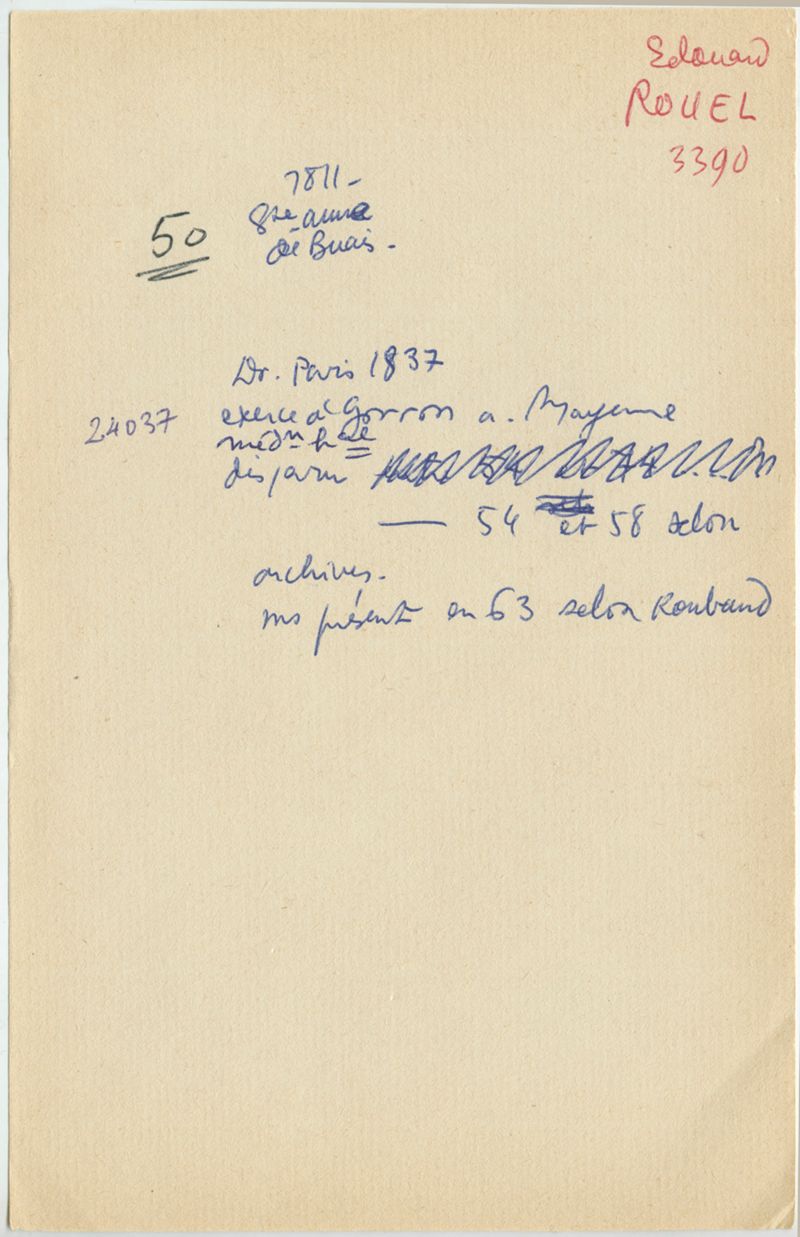 Edouard
ROUEL
3390
1811 -
Ste anne
de Buais -
50
Dr. Paris 1837
24037
exerce à Gorron a. Mayenne
méd^n h^re
disparu
— 54 et 58 selon
archives.
ms présent en 63 selon Roubaud